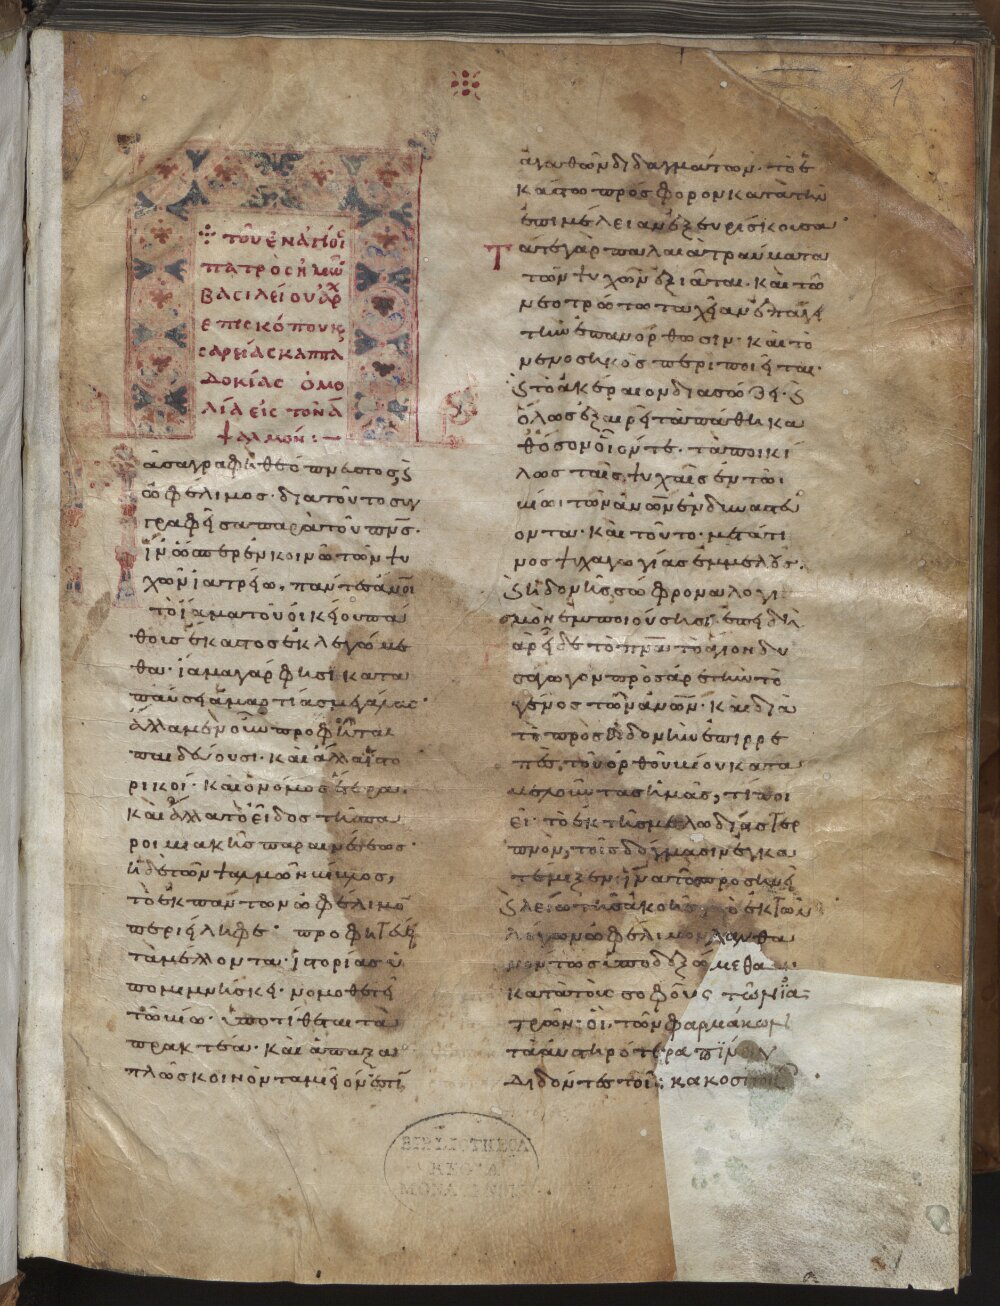 1
τοῦ ἐν ἁγίοις
πατρὸς ἡμῶν
βασιλείου ἀρχ
επισκόπου κ
σαρείας καππα
δοκίας ὁμι
λία εἰς τὸν ᾱ
ψαλμόν:
Πᾶσα γραφὴ θεόπνευστος, καὶ
ὠφέλιμος· διατοῦτο συγ
γραφεῖσα παρὰ τοῦ πνς·
ἵν' ὥσπερ ἐν κοινῶ τῶν ψυ
χῶν ἰατρείω, πάντες ἄνοι
τὸ ἴαμα τοῦ οἰκείου πά
θους ἕκαστος ἐκλεγώμε
θα· ἴαμα γάρ φησι κατα
παύσει ἁμαρτίας μεγάλας·
ἄλλα μὲν οὖν προφῆται
παιδεύουσι· καὶ ἄλλα ἱστο
ρικοί· καὶ ὁ νόμος ἕτερα·
καὶ ἄλλα τὸ εἶδος τῆς πα
ροιμιακῆς παραινέσεως·
ἡ δὲ τῶν ψαλμῶν βίβλος,
τὸ ἐκ πάντων ὠφέλιμον
περιείληφε· προφητεύει
τὰ μέλλοντα· ἱστορίας ὑ
πομιμνήσκει· νομοθετεῖ
τῶ βίω· ὑποτίθεται τὰ
πρακτέα· καὶ ἁπαξα
πλῶς κοινὸν ταμεῖόν ἐστιν
ἀγαθῶν διδαγμάτων· τὸ ἑ
κάστω πρόσφορον κατὰ τὴν
ἐπιμέλειαν ἐξευρίσκουσα·
Τά τε γὰρ παλαιὰ τραύματα
τῶν ψυχῶν ἐξιᾶται· καὶ τῶ
νεοτρώτω ταχεῖαν ἐπάγει
τὴν ἐπανόρθωσιν· καὶ τὸ
νενοσηκὸς περιποιεῖται·
καὶ τὸ ἀκέραιον διασώζει· καὶ
ὅλως ἐξαιρεῖ τὰ πάθη κα
θόσον οἷόν τε· τὰ ποικί
λως ταῖς ψυχαῖς ἐν τῶι
βίωι τῶν ἀνων ἐνδυναστεύ
οντα· καὶ τοῦτο· μετά τι
νος ψυχαγωγίας ἐμμελοῦς,
καὶ ἡδονῆς σώφρονα λογι
σμὸν ἐμποιούσης· ἐπειδὴ
γὰρ εἶδε τὸ πνα τὸ ἅγιον δυ
σάγωγον πρὸς ἀρετὴν τὸ
γένος τῶν ἀνων· καὶ διὰ
τὸ πρὸς ἡδονὴν ἐπιρρε
πές, τοῦ ὀρθοῦ βίου κατα
μελοῦντας ἡμᾶς, τί ποι
εῖ· τὸ ἐκ τῆς μελωδίας τερ
πνὸν, τοῖς δόγμασιν ἐγκα
τέμιξεν· ἵνα τῶ προσηνεῖ
καὶ λείω τῆς ἀκοῆς, τὸ ἐκ τῶν
λόγων ὠφέλιμον λανθά
νοντως ὑποδεξώμεθα·
κατὰ τοὺς σοφοὺς τῶν ἰα
τρῶν· οἳ, τῶν φαρμάκων
τὰ αὐστηρότερα πίνειν
διδόντες τοῖς κακοσίτοις